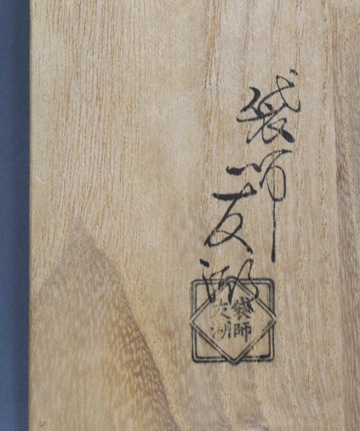 袋師友湖
袋師
友湖